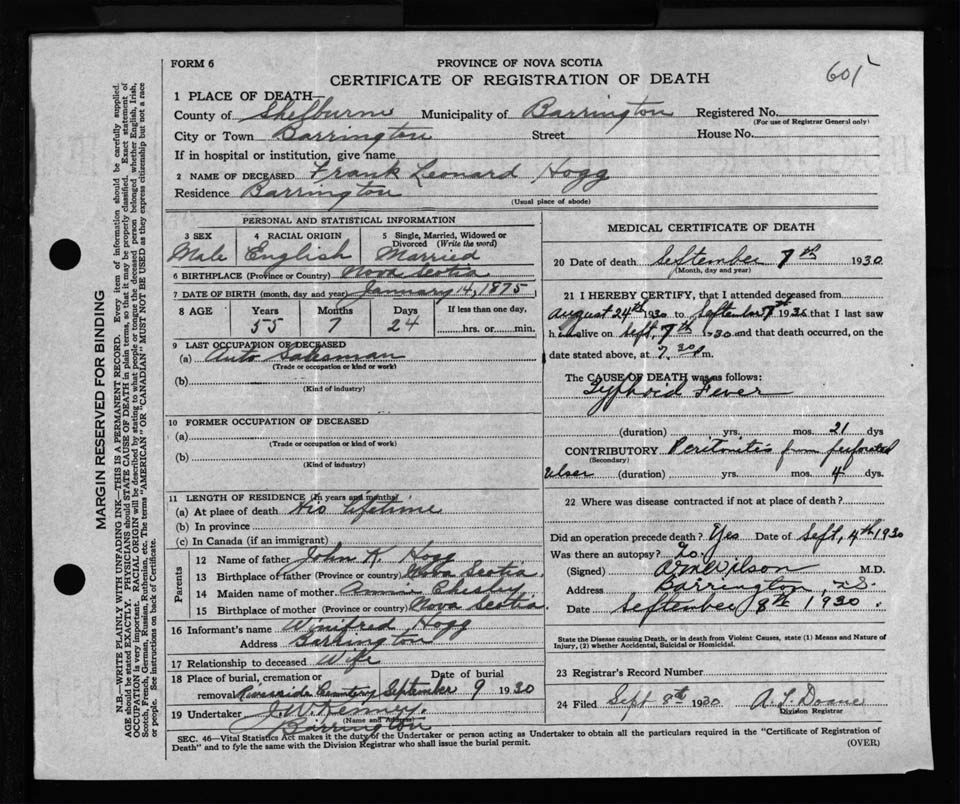 FORM 6
PROVINCE OF NOVA SCOTIA
CERTIFICATE OF REGISTRATION OF DEATH
601
1 PLACE OF DEATH—
County of Shelburne Municipality of Barrington Registered No.
(For use of Registrar General only)
City or Town Barrington Street House No.
If in hospital or institution, give name
2 NAME OF DECEASED Frank Leonard Hogg
Residence Barrington
(Usual place of abode)
PERSONAL AND STATISTICAL INFORMATION
3 SEX 4 RACIAL ORIGIN 5 Single, Married, Widowed or
Divorced (Write the word)
Male English Married
6 BIRTHPLACE (Province or Country) Nova Scotia
7 DATE OF BIRTH (month, day and year) January 14, 1875
8 AGE Years Months Days If less than one day,
55 7 24 hrs. or min.
9 LAST OCCUPATION OF DECEASED
(a) Auto Salesman
(Trade or occupation or kind or work)
(b)
(Kind of industry)
10 FORMER OCCUPATION OF DECEASED
(a)
(Trade or occupation or kind of work)
(b)
(Kind of industry)
11 LENGTH OF RESIDENCE (In years and months)
(a) At place of death His lifetime
(b) In province
(c) In Canada (if an immigrant)
Parents
12 Name of father John K. Hogg
13 Birthplace of father (Province or country) Nova Scotia.
14 Maiden name of mother Annie Chesley
15 Birthplace of mother (Province or country) Nova Scotia.
16 Informant's name Winifred Hogg
Address Barrington
17 Relationship to deceased Wife
18 Place of burial, cremation or Date of burial
removal Riverside Cemetery September 9 1930
19 Undertaker J. W. Kenney.
(Name and Address)
Barrington
MEDICAL CERTIFICATE OF DEATH
20 Date of death September 7th 1930
(Month, day and year)
21 I HEREBY CERTIFY, that I attended deceased from
August 24th 1930 to September 7th 1930 that I last saw
h alive on Sept, 7th 1930 and that death occurred, on the
date stated above, at 7.30 p m.
The CAUSE OF DEATH was as follows:
Typhoid Fever
(duration) yrs. mos. 21 dys
CONTRIBUTORY Peritonitis from perforated
(Secondary)
ulser (duration) yrs. mos. 4 dys.
22 Where was disease contracted if not at place of death?
Did an operation precede death? Yes Date of Sept, 4th 1930
Was there an autopsy? No.
(Signed) Wilson M.D.
Address Barrington N.S.
Date September 8th 1930.
State the Disease causing Death, or in death from Violent Causes, state (1) Means and Nature of
Injury, (2) whether Accidental, Suicidal or Homicidal.
23 Registrar's Record Number
24 Filed Sept 8th 1930 A. L. Doane
Division Registrar
SEC. 46—Vital Statistics Act makes it the duty of the Undertaker or person acting as Undertaker to obtain all the particulars required in the "Certificate of Registration of
Death" and to fyle the same with the Division Registrar who shall issue the burial permit.
(OVER)
MARGIN RESERVED FOR BINDING
N.B.—WRITE PLAINLY WITH UNFADING INK—THIS IS A PERMANENT RECORD. Every item of information should be carefully supplied.
AGE should be stated EXACTLY. PHYSICIANS should STATE CAUSE OF DEATH in plain terms, so that it may be properly classified. Exact statement of
OCCUPATION is very important. RACIAL ORIGIN will be described by stating to what people or tongue the deceased person belonged whether English, Irish,
Scotch, French, German, Russian, Ruthenian, etc. The terms "AMERICAN" OR "CANADIAN" MUST NOT BE USED as they express citizenship but not a race
or people. See instructions on back of Certificate.